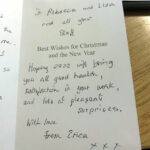 To Rebecca and Lidia
and all your
Staff
Best Wishes for Christmas
and the New Year
Hoping 2022 will bring
you all good health,
satisfaction in your work,
and lots of pleasant
surprises.
With love
From Erica
x x x